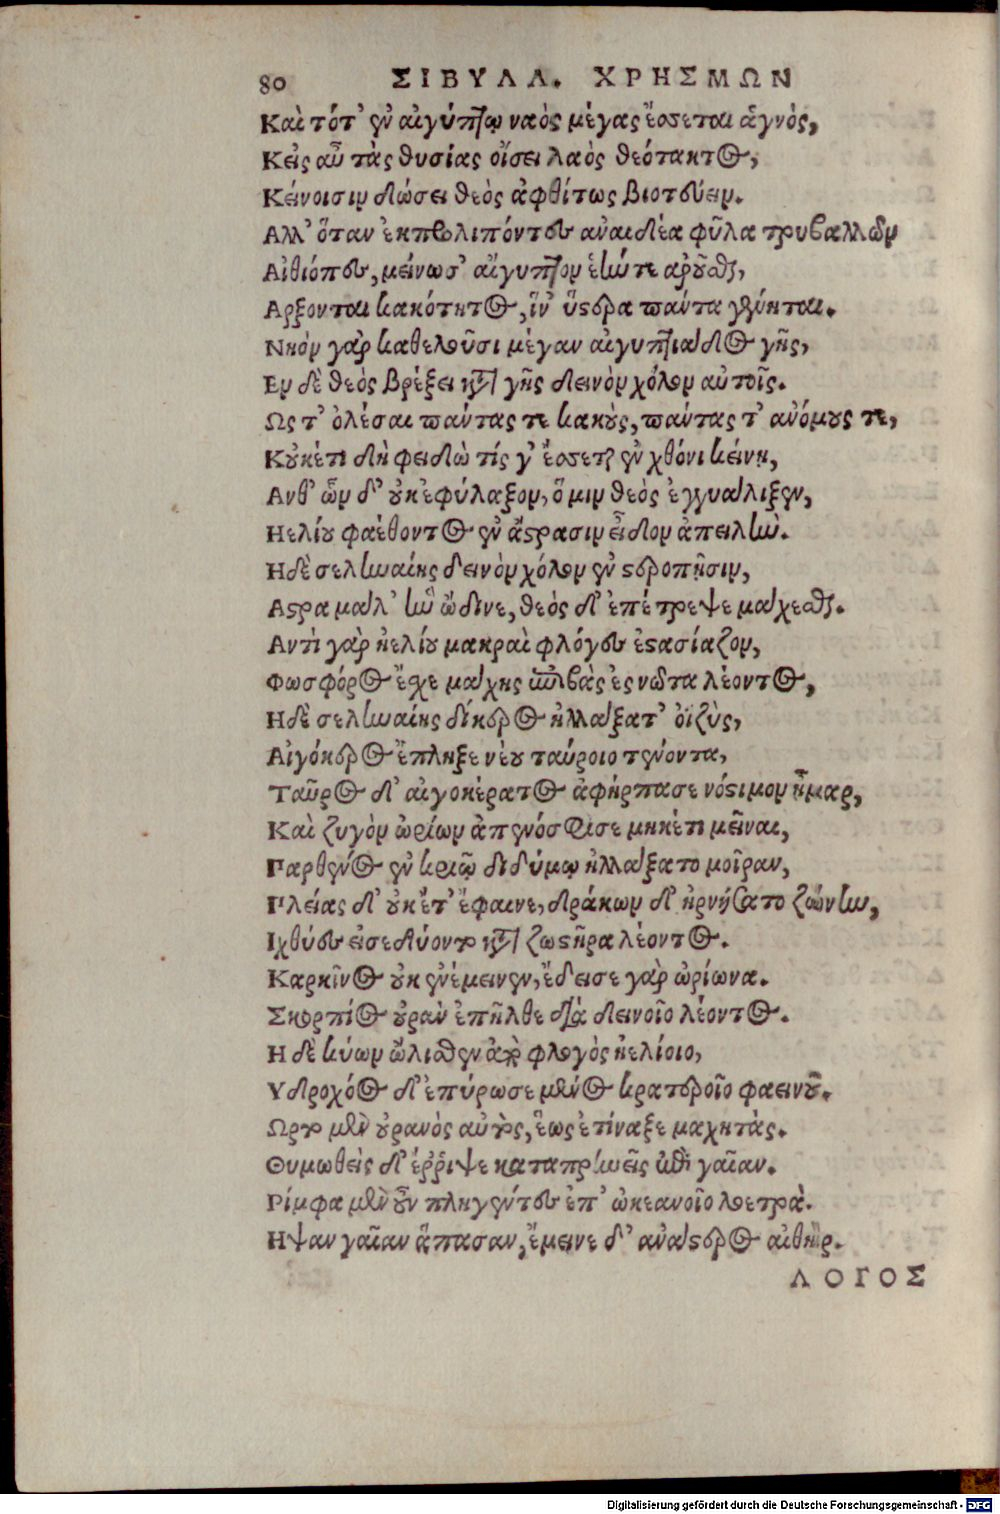 80 ΣΙΒΥΛΛ. ΧΡΗΣΜΩΝ
Καὶ τότ' ἐν αἰγύπτῳ ναὸς μέγας ἔσσεται ἁγνὸς,
Κεἰς αὖ τὰς θυσίας οἴσει λαὸς θεότακτος,
Κείνοισιν δώσει θεὸς ἀφθίτως βιοτεύειν.
Αλλ' ὅταν ἐκπρολιπόντες ἀναιδέα φῦλα τριβαλλῶν
Αἰθιόπες, μείνωσ' αἴγυπτον ἑήν τε ἀροῦσθαι,
Αρξονται κακότητος, ἵν' ὕστερα πάντα γένηται.
Νηὸν γὰρ καθελοῦσι μέγαν αἰγυπτιάδος γῆς,
Εν δὲ θεὸς βρέξει κατὰ γῆς δεινὸν χόλον αὐτοῖς.
Ως τ' ὀλέσαι πάντας τε κακοὺς, πάντας τ' ἀνόμους τε,
Κοὐκέτι δὴ φειδὼ τίς γ' ἔσσεται ἐν χθόνι κείνῃ,
Ανθ' ὧν δ' οὐκ ἐφύλαξον, ὅ μιν θεὸς ἐγγυάλιξεν,
Ηελίου φαέθοντος ἐν ἄστρασιν εἶδον ἀπειλὴν.
Ηδὲ σεληναίης δεινὸν χόλον ἐν στεροπῇσιν,
Αστρα μάλ' ἦν ὤδινε, θεὸς δ' ἐπέτρεψε μάχεσθαι.
Αντὶ γὰρ ἠελίου μακραὶ φλόγες ἐστασίαζον,
Φωσφόρος ἔσχε μάχης ἐπιβὰς ἐς νῶτα λέοντος,
Ηδὲ σεληναίης δίκερος ἠλλάξατ' ὀϊζὺς,
Αἰγόκερος ἔπληξε νέου ταύροιο τένοντα,
Ταῦρος δ' αἰγοκέρατος ἀφήρπασε νόστιμον ἦμαρ,
Καὶ ζυγὸν ὠρίων ἀπενόσφισε μηκέτι μεῖναι,
Παρθένος ἐν κριῷ διδύμῳ ἠλλάξατο μοῖραν,
Πλείας δ' οὐκ ἔτ' ἔφαινε, δράκων δ' ἠρνήσατο ζώνην,
Ιχθύες εἰσεδύοντο κατὰ ζωστῆρα λέοντος.
Καρκῖνος οὐκ ἐνέμεινεν, ἔδεισε γὰρ ὠρίωνα.
Σκορπίος οὐρὰν ἐπῆλθε διὰ δεινοῖο λέοντος.
Η δὲ κύων ὤλισθεν ἀπὸ φλογὸς ἠελίοιο,
Υδροχόος δ' ἐπύρωσε μένος κρατεροῖο φαεινοῦ.
Ωρτο μὲν οὐρανὸς αὐτὸς, ἕως ἐτίναξε μαχητὰς.
Θυμωθεὶς δ' ἔῤῥιψε καταπρηνεῖς ἐπὶ γαῖαν.
Ρίμφα μὲν οὖν πληγέντες ἐπ' ὠκεανοῖο λοετρὰ.
Ηψαν γαῖαν ἅπασαν, ἔμεινε δ' ἀνάστερος αἰθήρ.
ΛΟΓΟΣ
Digitalisierung gefördert durch die Deutsche Forschungsgemeinschaft - DFG